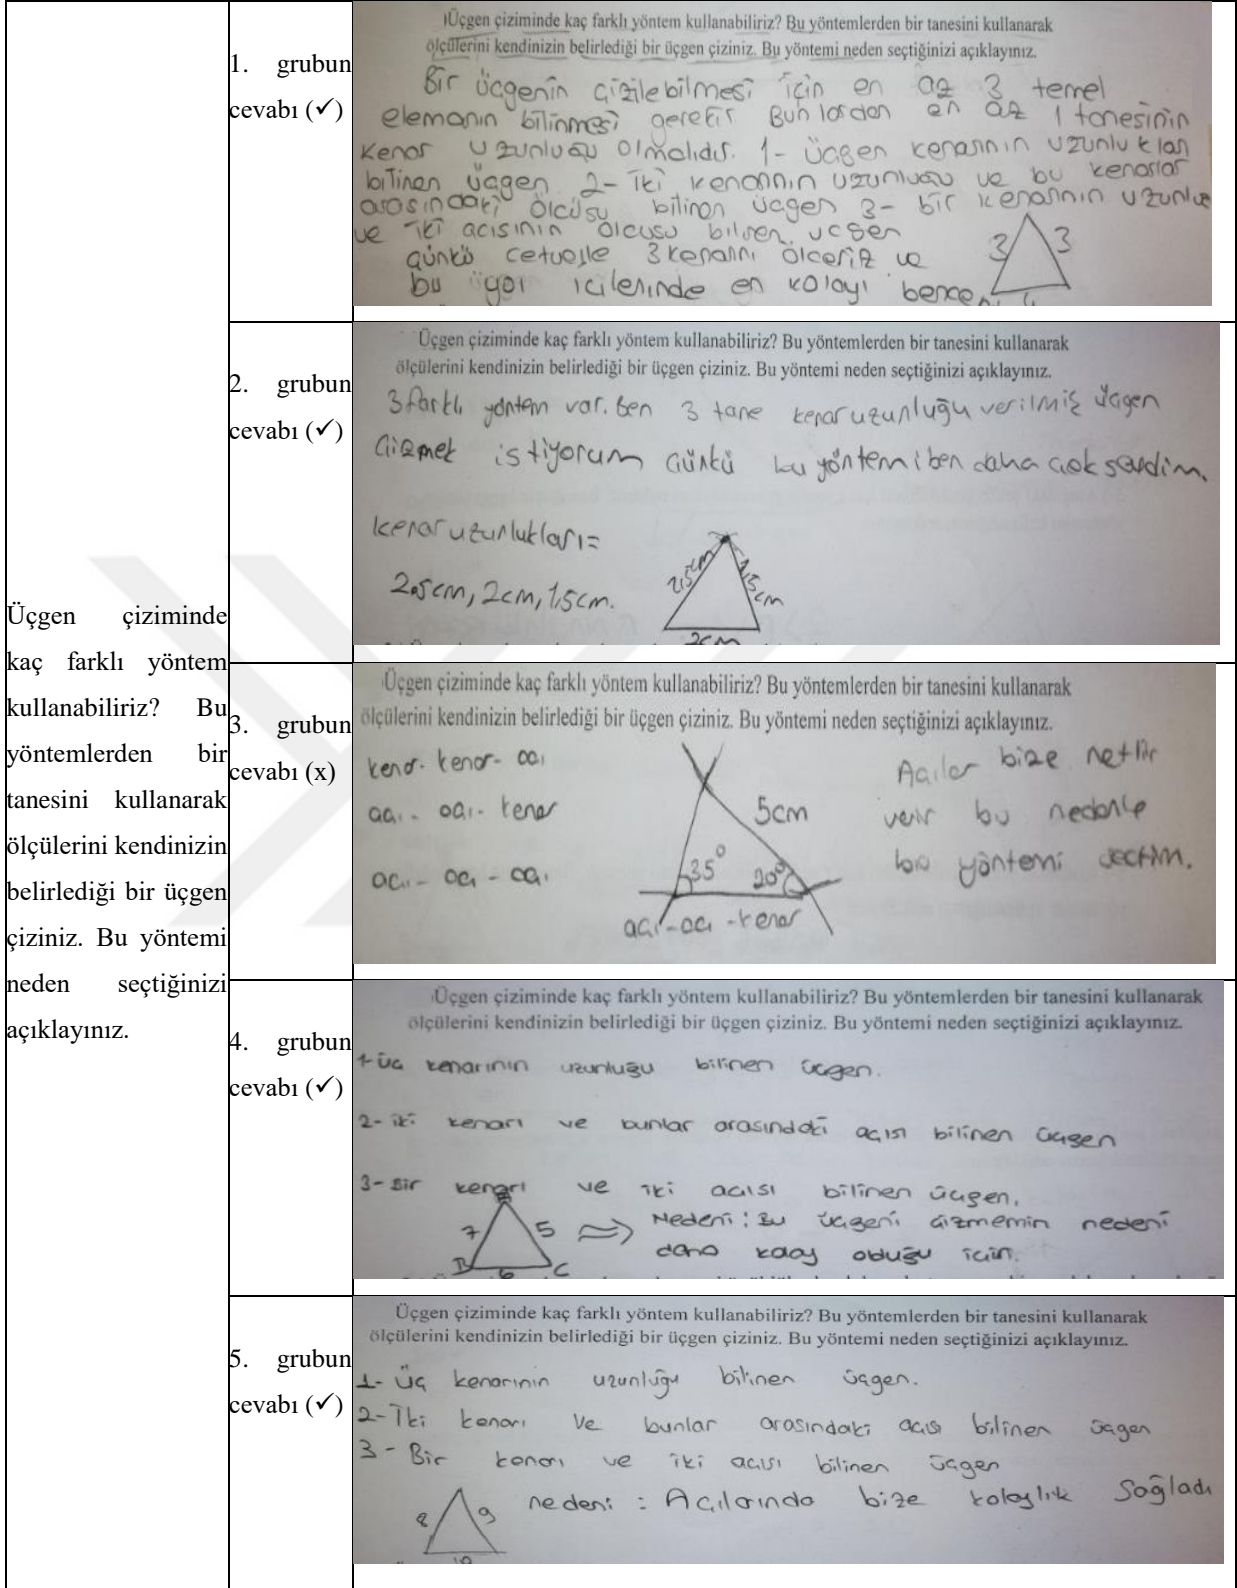 Üçgen çiziminde
kaç farklı yöntem
kullanabiliriz? Bu
yöntemlerden bir
tanesini kullanarak
ölçülerini kendinizin
belirlediği bir üçgen
çiziniz. Bu yöntemi
neden seçtiğinizi
açıklayınız.
1. grubun
cevabı (✓)
Üçgen çiziminde kaç farklı yöntem kullanabiliriz? Bu yöntemlerden bir tanesini kullanarak
ölçülerini kendinizin belirlediği bir üçgen çiziniz. Bu yöntemi neden seçtiğinizi açıklayınız.
Bir üçgenin çizilebilmesi için en az 3 temel
elemanın bilinmesi gerekir Bunlardan en az 1 tanesinin
Kenar uzunluğu olmalıdır. 1- üçgen kenarının uzunlukları
bilinen üçgen 2- iki kenarının uzunluğu ve bu kenarlar
arasındaki ölçüsü bilinen üçgen 3- bir kenarının uzunlu
ve iki açısının ölçüsü bilinen üçgen
çünkü cetvelle 3 kenarını ölçeriz ve
bu içlerinde en kolayı bence
3 3
2. grubun
cevabı (✓)
Üçgen çiziminde kaç farklı yöntem kullanabiliriz? Bu yöntemlerden bir tanesini kullanarak
ölçülerini kendinizin belirlediği bir üçgen çiziniz. Bu yöntemi neden seçtiğinizi açıklayınız.
3 farklı yöntem var. Ben 3 tane kenar uzunluğu verilmiş üçgen
Çizmek istiyorum Çünkü bu yöntemi ben daha çok sevdim.
Kenar uzunlukları=
2.5cm, 2cm, 1,5cm.
2,5cm 1,5cm
2cm
3. grubun
cevabı (x)
Üçgen çiziminde kaç farklı yöntem kullanabiliriz? Bu yöntemlerden bir tanesini kullanarak
ölçülerini kendinizin belirlediği bir üçgen çiziniz. Bu yöntemi neden seçtiğinizi açıklayınız.
kenar- kenar- açı
açı - açı- kenar
açı - açı - açı
5cm
35° 20°
açı-açı-kenar
Açılar bize netlik
verir bu nedenle
bu yöntemi seçtim.
4. grubun
cevabı (✓)
Üçgen çiziminde kaç farklı yöntem kullanabiliriz? Bu yöntemlerden bir tanesini kullanarak
ölçülerini kendinizin belirlediği bir üçgen çiziniz. Bu yöntemi neden seçtiğinizi açıklayınız.
1- üç kenarının uzunluğu bilinen üçgen.
2- iki kenarı ve bunlar arasındaki açısı bilinen üçgen
3- Bir kenarı ve iki açısı bilinen üçgen.
7 5
B 6 C
Nedeni: Bu üçgeni çizmemin nedeni
daha kolay olduğu için.
5. grubun
cevabı (✓)
Üçgen çiziminde kaç farklı yöntem kullanabiliriz? Bu yöntemlerden bir tanesini kullanarak
ölçülerini kendinizin belirlediği bir üçgen çiziniz. Bu yöntemi neden seçtiğinizi açıklayınız.
1- Üç kenarının uzunluğu bilinen üçgen.
2- İki kenarı ve bunlar arasındaki açısı bilinen üçgen
3 - Bir kenarı ve iki açısı bilinen üçgen
nedeni : Açılarında bize kolaylık Sağladı
8 9
10